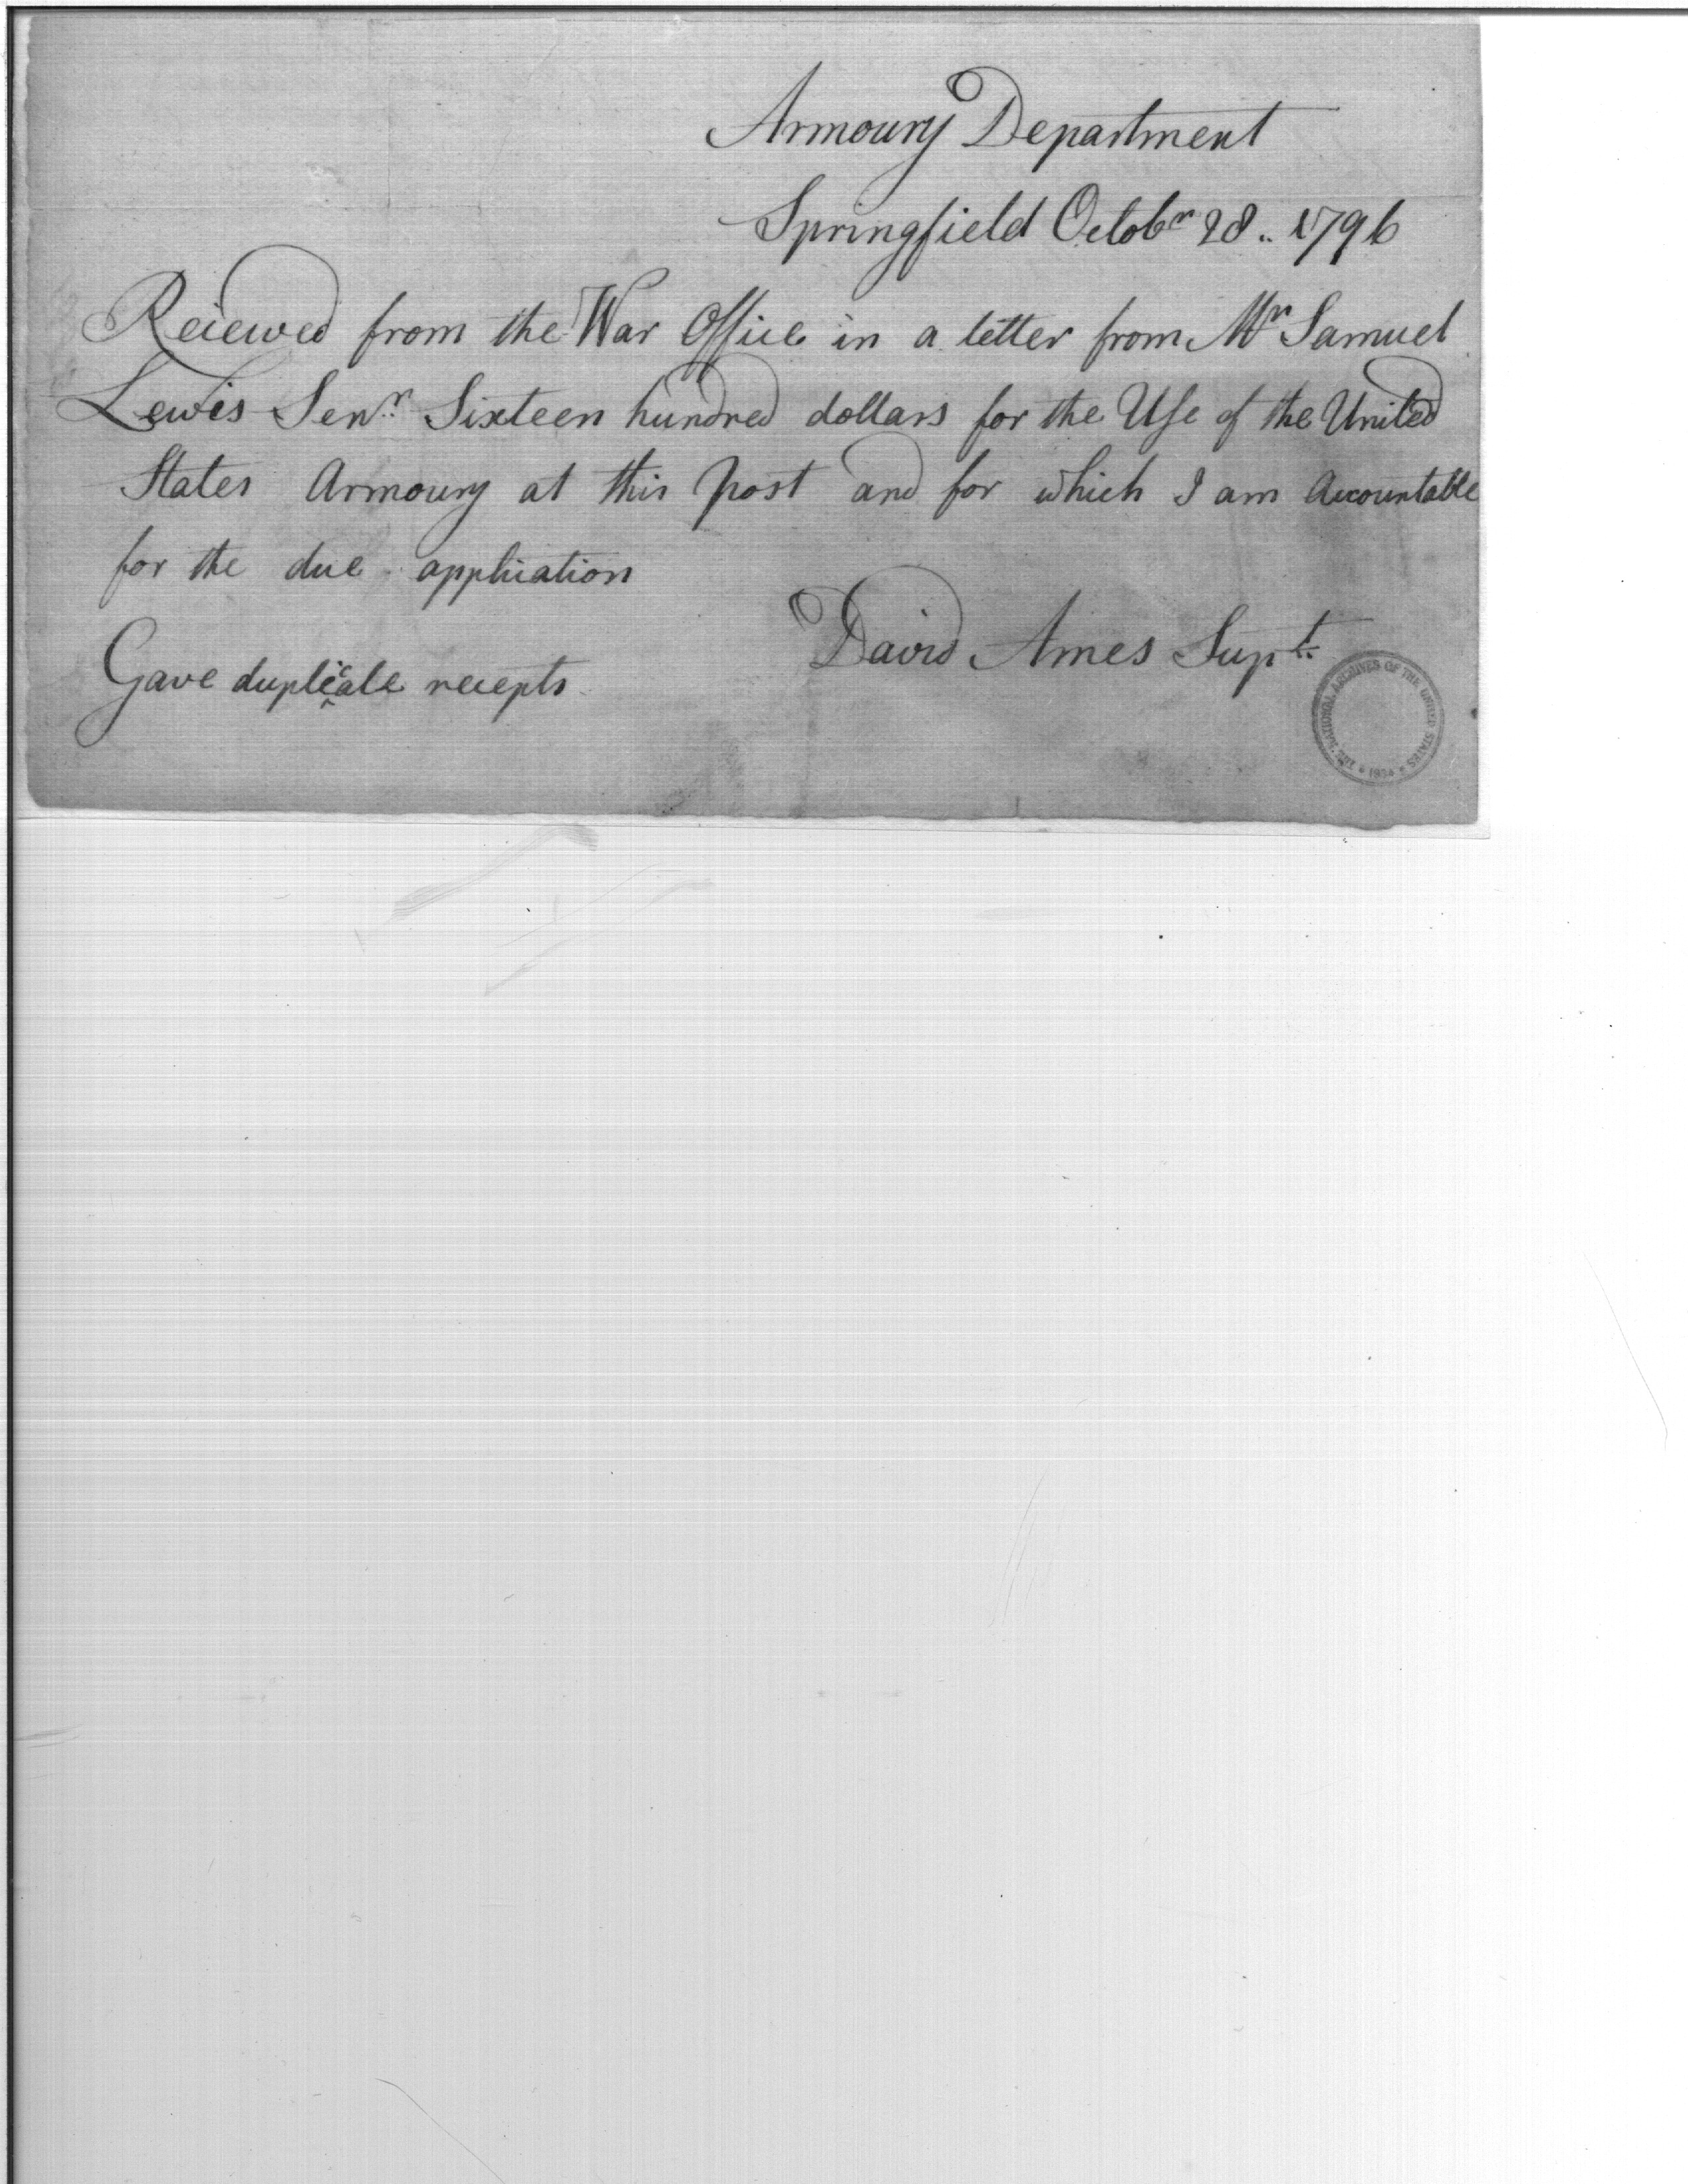 Armoury Department
Springfield Octobr 28.. 1796
Reciewed from the War Office in a letter from Mr Samuel
Lewis Senr. Sixteen hundred dollars for the Use of the United
States Armoury at this post and for which I am Accountable
for the due application
David Ames Supt.
Gave duplicate recepts
THE NATIONAL ARCHIVES OF THE UNITED STATES * 1934 *